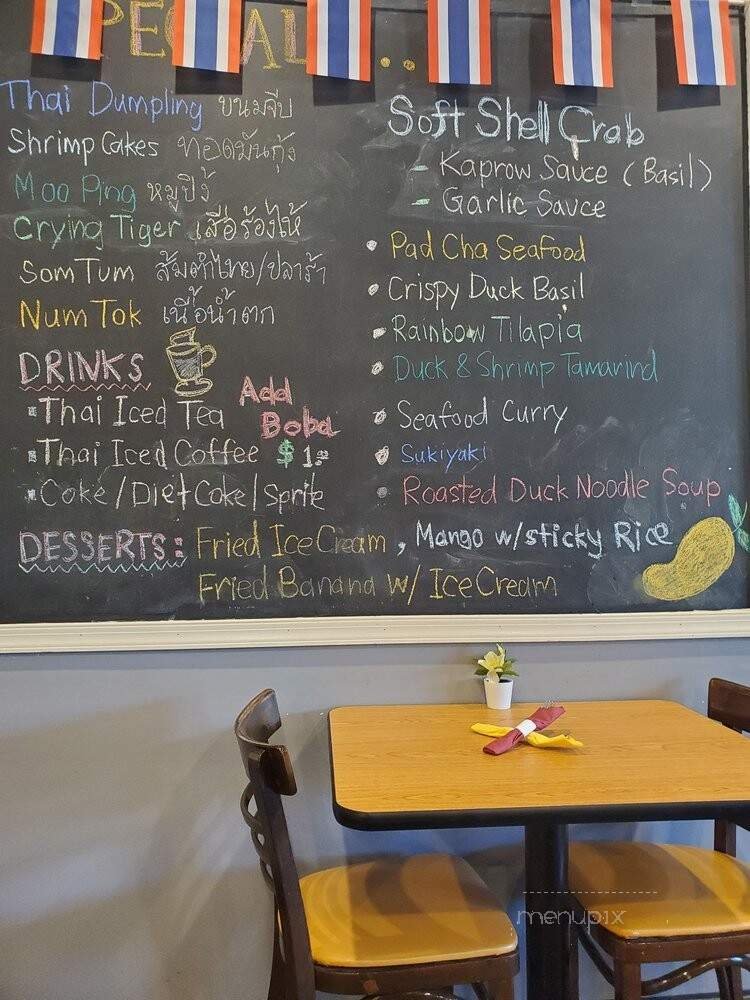 SPECIAL...
Thai Dumpling ขนมจีบ
Shrimp Cakes ทอดมันกุ้ง
Moo Ping หมูปิ้ง
Crying Tiger เสือร้องไห้
Som Tum ส้มตำไทย/ปลาร้า
Num Tok เนื้อน้ำตก
DRINKS
Thai Iced Tea
Thai Iced Coffee
Coke/Diet Coke/Sprite
Add
Boba
$1.00
DESSERTS: Fried Ice Cream, Mango w/sticky Rice
Fried Banana w/ Ice Cream
Soft Shell Crab
- Kaprow Sauce (Basil)
- Garlic Sauce
• Pad Cha Seafood
• Crispy Duck Basil
• Rainbow Tilapia
• Duck & Shrimp Tamarind
• Seafood Curry
• Sukiyaki
• Roasted Duck Noodle Soup
menupix